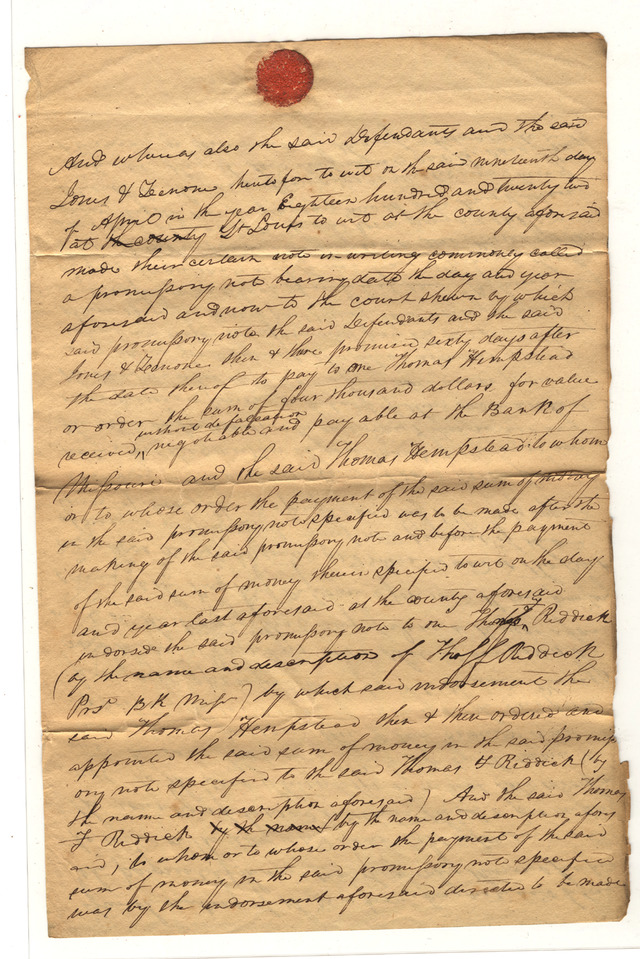 And whereas also the said Defendants and the said
Jones & Teanone heretofore to wit on the said nineteenth day
of April in the year Eighteen hundred and twenty two
at the county St Louis to wit at the county aforesaid
made their certain note in writing commonly called
a promissory note bearing date the day and year
aforesaid and now to the court shewn by which
said promissory note the said Defendants and the said
Jones & Teanone then & there promised sixty days after
the date thereof to pay to one Thomas Hempstead
or order the sum of four thousand dollars for value
without defalcation
received, negotiable and payable at the Bank of
Missouri and the said Thomas Hempstead to whom
or to whose order the payment of the said sum of money
in the said promissory note specified was to be made after the
making of the said promissory note and before the payment
of the said sum of money therein specified to wit on the day
and year last aforesaid at the county aforesaid
indorsed the said promissory note to one Thomas F Riddick
(by the name and description of Tho F Riddick
Prst BK Misso) by which said indorsement the
said Thomas Hempstead then & there ordered and
appointed the said sum of money in the said promiss
ory note specified to the said Thomas F Riddick (by
the name and description aforesaid) And the said Thomas
F Riddick by the name by the name and description afores
aid, to whom or to whose order the payment of the said
sum of money in the said promissory note specified
was by the indorsement aforesaid directed to be made